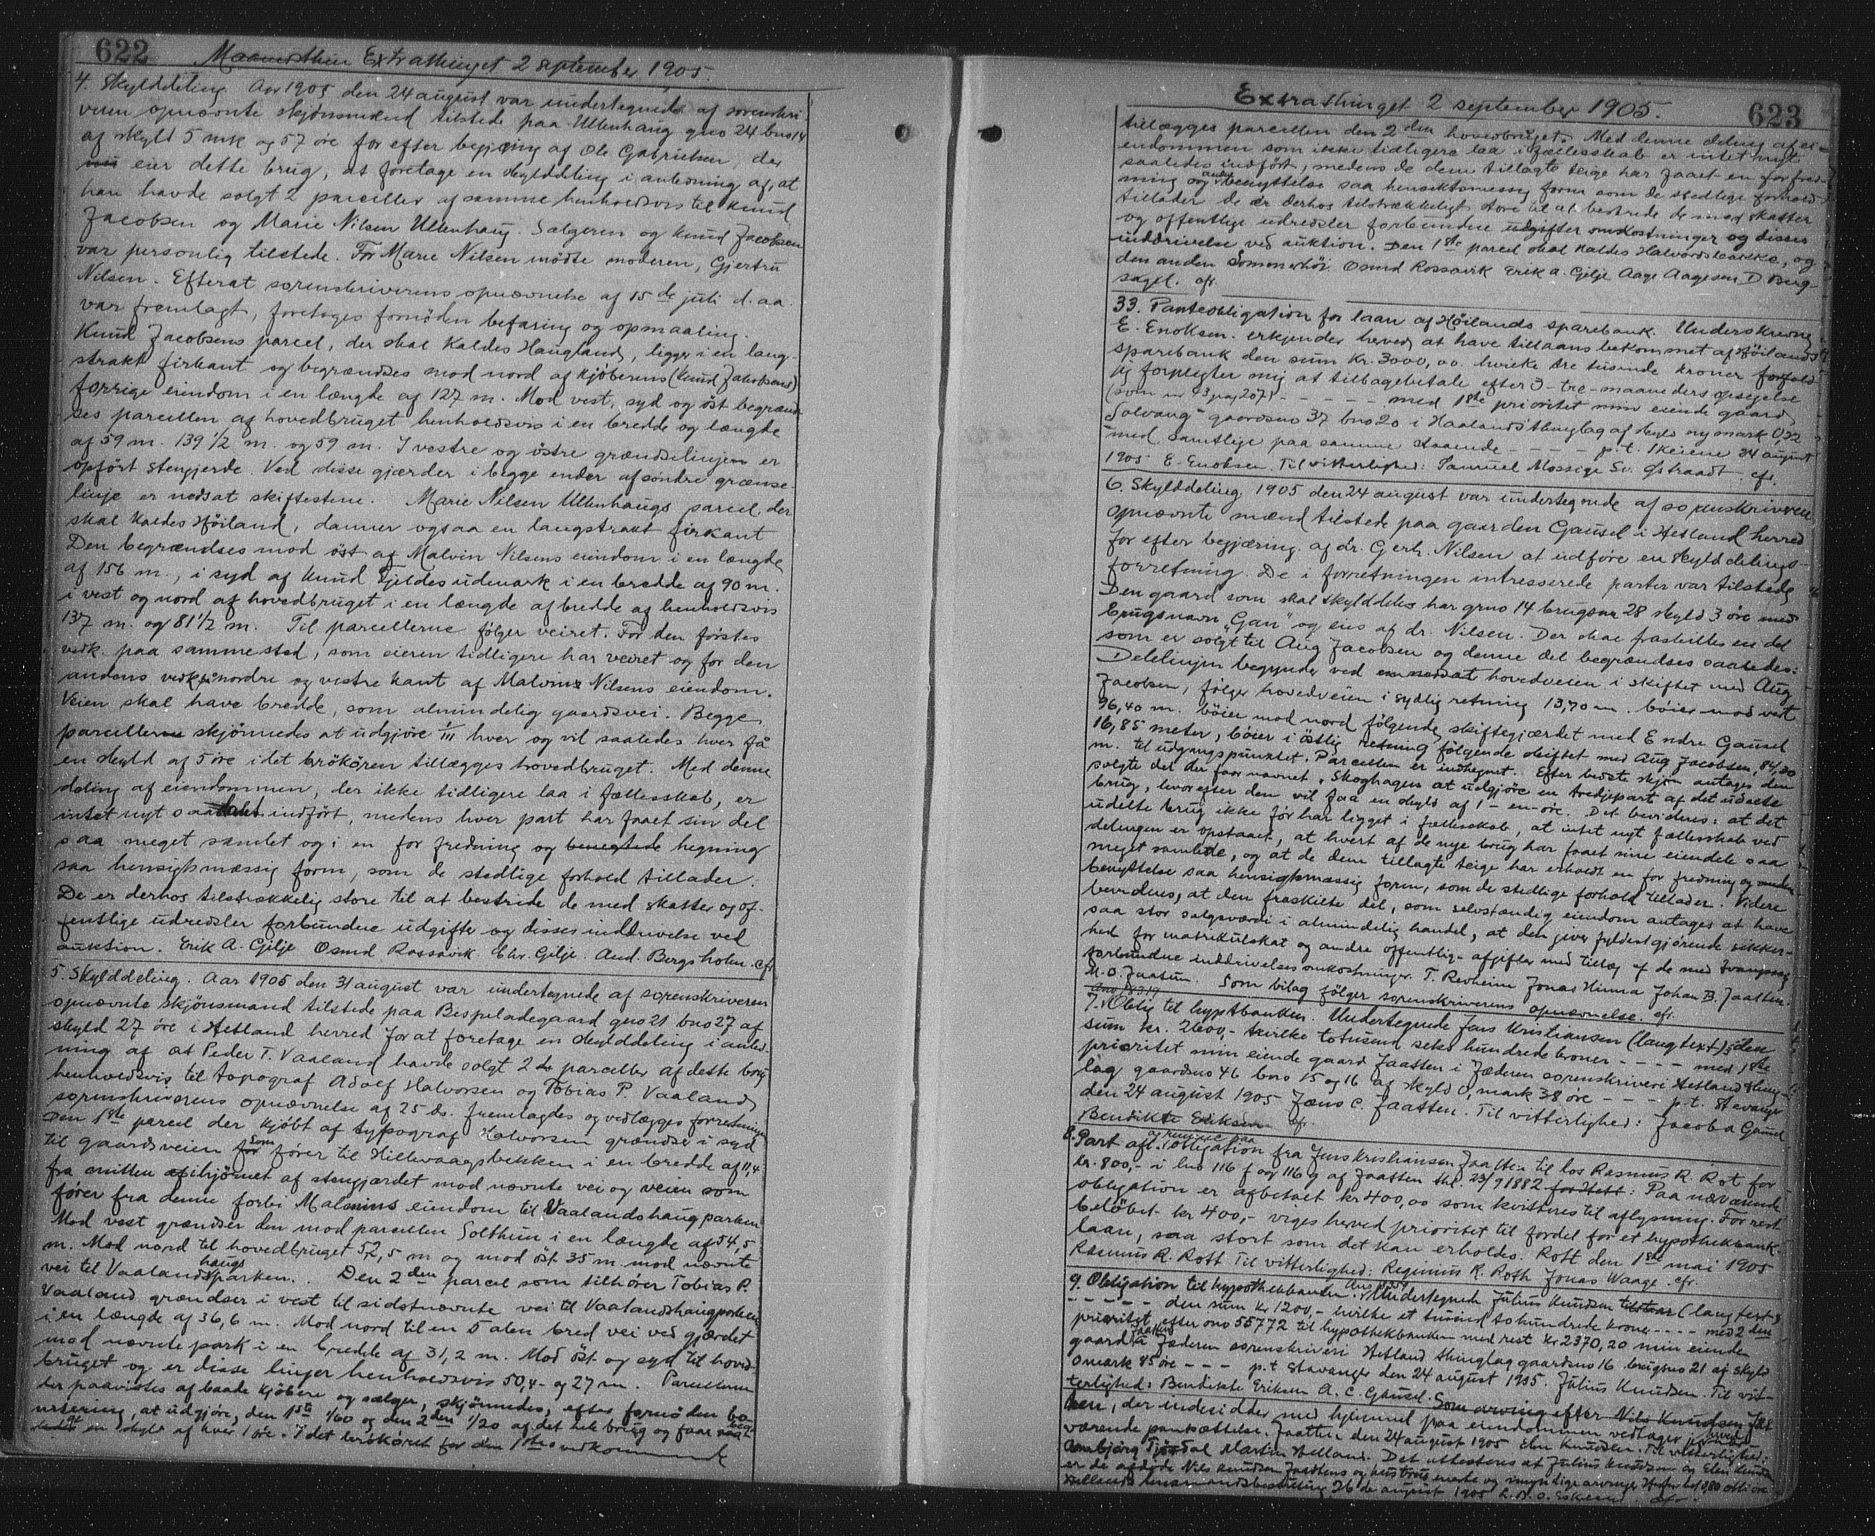 622
Maanedthin Extrathinget 2 september 1905.
4. Skylddeling. Aar 1905 den 24 august var undertegnede af sorenskri-
veren opnævnte skjønsmænd tilstede paa Ullenhaug gno 24 bno 14
af skyld 5 mk og 57 øre for efter begjæring af Ole Gabrielsen, der
nu eier dette brug, at foretage en skylddeling i anledning af, at
han havde solgt 2 parceller af samme henholdsvis til Knud
Jacobsen og Marie Nilsen Ullenhaug. Sælgeren og Knud Jacobsen
var personlig tilstede. For Marie Nilsen mødte moderen, Gjertru
Nilsen. Efterat sorenskriverens opnævnelse af 15de juli d. aa.
var fremlagt, foretoges fornøden befaring og opmaaling.
Knud Jacobsens parcel, der skal kaldes Haugland, ligger i en lang-
strakt firkant og begrændses mod nord af kjøberens (Knud Jakobsens)
forrige eiendom i en længde af 127 m. Mod vest, syd og øst begrænd-
ses parcellen af hovedbruget henholdsvis i en bredde og længde
af 59 m. 139 1/2 m. og 59 m. I vestre og østre grændselinjen er
opført stengjerde. Ved disse gjærder i begge ender af søndre grænse-
linje er nedsat skiftestene. Marie Nilsen Ullenhaugs parcel, der
skal kaldes Høiland, danner ogsaa en langstrakt firkant
Den begrændses mod øst af Malvin Nilsens eiendom i en længde
af 156 m., i syd af Knud Tjeldes udmark i en bredde af 90 m.
i vest og nord af hovedbruget i en længde af bredde af henholdsvis
137 m. og 81 1/2 m. Til parcellerne følger veiret. For den førstes
vedk. paa samme sted, som eieren tidligere har veiret og for den
andens vedk. i nordre og vestre kant af Malvins Nilsens eiendom.
Veien skal have bredde, som almindelig gaardsvei. Begge
parcellerne skjønnedes at udgjøre 1/111 hver og vil saaledes hver få
en skyld af 5 øre idet brökören tillægges hovedbruget. Med denne
deling af eiendommen, der ikke tidligere laa i fællesskab, er
intet nyt saadant indført, medens hver part har faaet sin del
saa meget samlet og i en for fredning og benegtede hegning
saa hensigtsmæssig form, som de stedlige forhold tillader.
De er derhos tilstrækkelig store til at bestride de med skatter og of-
fentlige udredsler forbundne udgifter og disses inddrivelse ved
auktion. Erik A. Gilje Osmd Rossavik Chr. Gilje. And. Bergsholm. cfr
5. Skylddeling. Aar 1905 den 31 august var undertegnede af sorenskriveren
opnævnte skjønsmænd tilstede paa Bispeladegaard gno 21 bno 27 af
skyld 27 øre i Hetland herred for at foretage en skylddeling i anled-
ning af at Peder T. Vaaland havde solgt 2 de parceller af dette brug
henholdsvis til topograf Adolf Halvorsen og Tobias P. Vaaland
sorenskriverens opnævnelse af 25 ds. fremlagdes og vedlægges forretningen
Den 1ste parcel der kjøbt af typograf Halvorsen grændser i syd
til gaardsveien for som fører til Hillevaagsbekken i en bredde af 11,4
fra midten af i hjørnet af stengjærdet mod nævnte vei og veien som
fører fra denne forbi Malmins eiendom til Vaalandshaugparken
Mod vest grændser den mod parcellen Solthun i en længde af 54,5
m. Mod nord til hovedbruget 52,5 m og mod øst 35 m. mod nævnte
vei til Vaalandshaugsparken. Den 2den parcel som tilhører Tobias P.
Vaaland grændser i vest til sidstnævnte vei til Vaalandshaugparken
i en længde af 36,6 m. Mod nord til en 5 alen bred vei ved gjærdet
mod nævnte park i en bredde af 31,2 m. Mod øst og syd til hoved-
bruget og er disse linjer henholdsvis 50,4 og 27 m. Parcellerne
der paavistes af baade kjøbere og sælger, skjønnedes, efter fornøden bo-
nitering, at udgjøre, den 1ste 1/60 og den 2den 1/20 af det hele brug og faar
en skyld af hver 1 øre. I det brökøret for den 1stes vedkommende
623
Extrathinget 2 september 1905.
tillægges parcellen den 2den hovedbruget. Med denne deling af ei-
endommen som ikke tidligere laa i fællesskab er intet nyt
saadant indført, medens de dem tillagte teige har faaet en for fred-
ning og anden benyttelse saa hensiktsmessig form som de stedlige forhold
tillader de er derhos tilstrækkeligt store til at bestride de med skatter
og offentlige udredsler forbundne udgifter omkostninger og disses
inddrivelse ved auktion. Den 1ste parcel skal kaldes Halvardsbakke, og
den anden Sommerhøi Osmd Rossavik Erik A. Gilje Aage Aagesen D Berg-
saget. cfr.
33. Panteobligation for laan af Høilands sparebank. Underskrevne
E. Enoksen. erkjender herved at have tillaans bekommet af Høilands
sparebank den sum kr. 3000,00 hvilke tre tusende kroner forfald
jeg forpligter mig at tilbagebetale efter 3-tre-maaneders opsigelse
(som nr 3 pag 207) - - - - - med 1ste prioritet min eiende gaard
"Solvang" gaardsno 37 bno 20 i Haalands thinglag af skyld ny mark 0,22
med samtlige paa samme staaende - - - - p.t. Skeiene 24 august
1905 E. Enoksen. Til vitterlighed: Samuel Mossige Sv. Østraadt. cfr.
6. Skylddeling. 1905 den 24 august var undertegnede af sorenskriveren
opnævnte mænd tilstede paa gaarden Gausel i Hetland herred
for efter begjæring af dr. Gerh. Nilsen at udføre en skylddelings-
forretning. De i forretningen intresserede parter var tilstede
Den gaard som skal skylddeles har grno 14 brugsnr 28 skyld 3 øre med
brugsnavn „Gan" og eies af dr. Nilsen. Der skal fraskilles en del
som er solgt til Aug Jacobsen og denne del begrændses saaledes:
Delelinjen begynder ved en nedsat hovedveien i skiftet med Aug
Jacobsen, følger hovedveien i sydlig retning 13,70 m. bøier mod vest
96,40 m. bøier mod nord følgende skiftegjærdet med Endre Gausel
16,85 meter, bøier i østlig retning følgende skiftet med Aug Jacobsen, 84,30
m. til udgangspunktet. Parcellen er indhegnet. Efter bedste skjøn antages den
solgte del der faar navnet „Skoghagen at udgjøre en tredjepart af det udelte
brug, hvorefter den vil faa en skyld af 1-en-øre. Det bevidnes: at det
udelte brug ikke før har ligget i fællesskab, at intet nyt fællesskab ved
delingen er opstaaet, at hvert af de nye brug har faaet sine eiendele saa
meget samlede, og at de dem tillagte teige har erholdt en for fredning og anden
benyttelse saa hensigtsmæssig form, som de stedlige forhold tillader. Videre
bevidnes, at den fraskilte del, som selvstændig eiendom antages at have
saa stor salgsværdi i almindelig handel, at den giver fyldestgjørende sikker-
hed for matrikulskat og andre offentlige afgifter med tillæg af de med tvangssalg
forbundne inddrivelsesomkostninger. T. Revheim Jonas Hinna Johan B. Jaatten.
M. O. Jaatun. Som bilag følger sorenskriverens opnævnelse. cfr.
7. Oblig til hyptbanken. Undertegnede Jens Kristiansen (langtext) den
sum kr. 2600,- hvilke totusend seks hundrede kroner - - - - med 1ste
prioritet min eiende gaard Jaatten i Jæderen sorenskriveri Hetland thing-
lag gaardsno 46 bno 15 og 16 af skyld 0, mark 38 øre - - - p.t. Stavanger
den 24 august 1905 Jens C. Jaatten. Til vitterlighed: Jacob A Gausel
Bendikte Eriksen cfr.
8. Part afl. af kvit paa obligation fra Jens Kristiansen Jaatten til los Rasmus R. Rot for
kr. 800,- i bno 116 f og 116 g af Jaatten thl. 23/9 1882 for Hetl: Paa nærværende
obligation er afbetalt kr 400,00 som kvitteres til aflysning. For rest
beløbet kr 400,- viges herved prioritet til fordel for et hypothekbank-
laan, saa stort som det kan erholdes. Rott den 1ste mai 1905
Rasmus R. Rott Til vitterlighed: Reginius R. Roth Jonas Waage. cfr.
9. Obligation til hypothekbanken. Undertegnede Julius Knudsen tilstaar (langtext)
- - - - - den sum kr 1200,- hvilke et tusind tohundrede kroner - - - - med 2den
prioritet efter ono 55772 til hypothekbanken med rest kr 2370,20 min eiende
gaard Jaatten i Jæderen sorenskriveri Hetland thinglag gaardsno 16 brugsno 21 af skyld
0 mark 85 øre - - - p.t Stavanger den 24 august 1905. Julius Knudsen. Til vit-
terlighed: Bendikte Eriksen A. C. Gausel. Som arving efter Nils Knudsen Jaat
ten, der indesidder med hjemmel paa eiendommen vedtager jeg herved
værende pantsættelse. Jaatten den 24 august 1905 Elen Knudsen. Til vitterlighed:
Ambjørg Tjøssdal Martin Helland. Det attesteres at Julius Knudsen og Elen Knudsen
er de afdøde Nils Knudsen Jaattens og hustrus eneste og myndige arvinger
Hetland lensmandsbestilling 26de august 1905